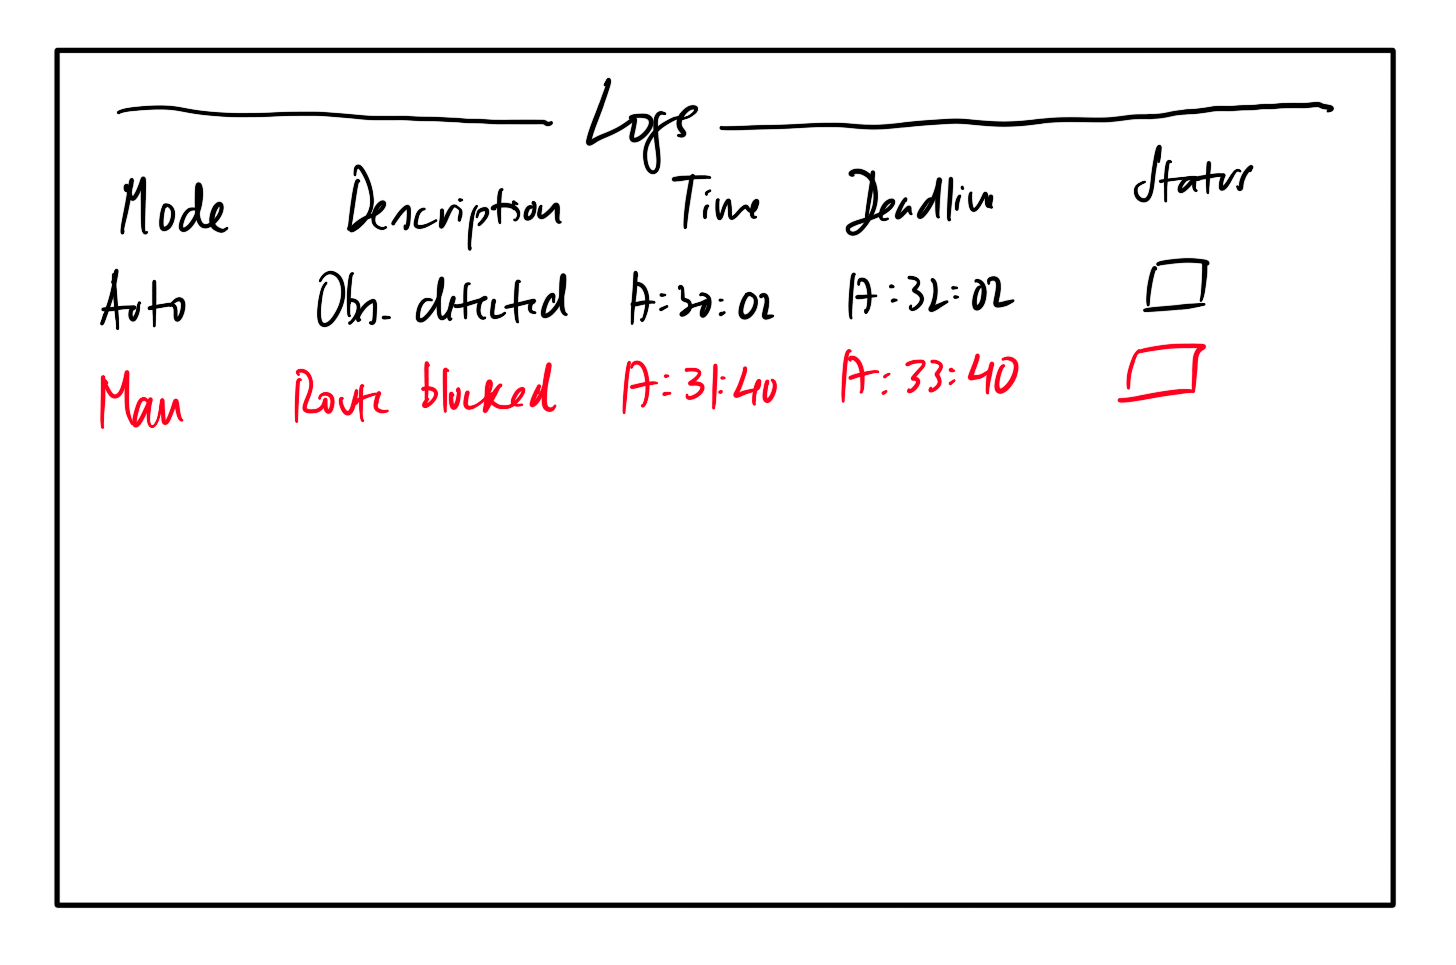 Logs
Mode Description Time Deadline Status
Auto Obs. detected 17:30:02 17:32:02
Man Route blocked 17:31:40 17:33:40